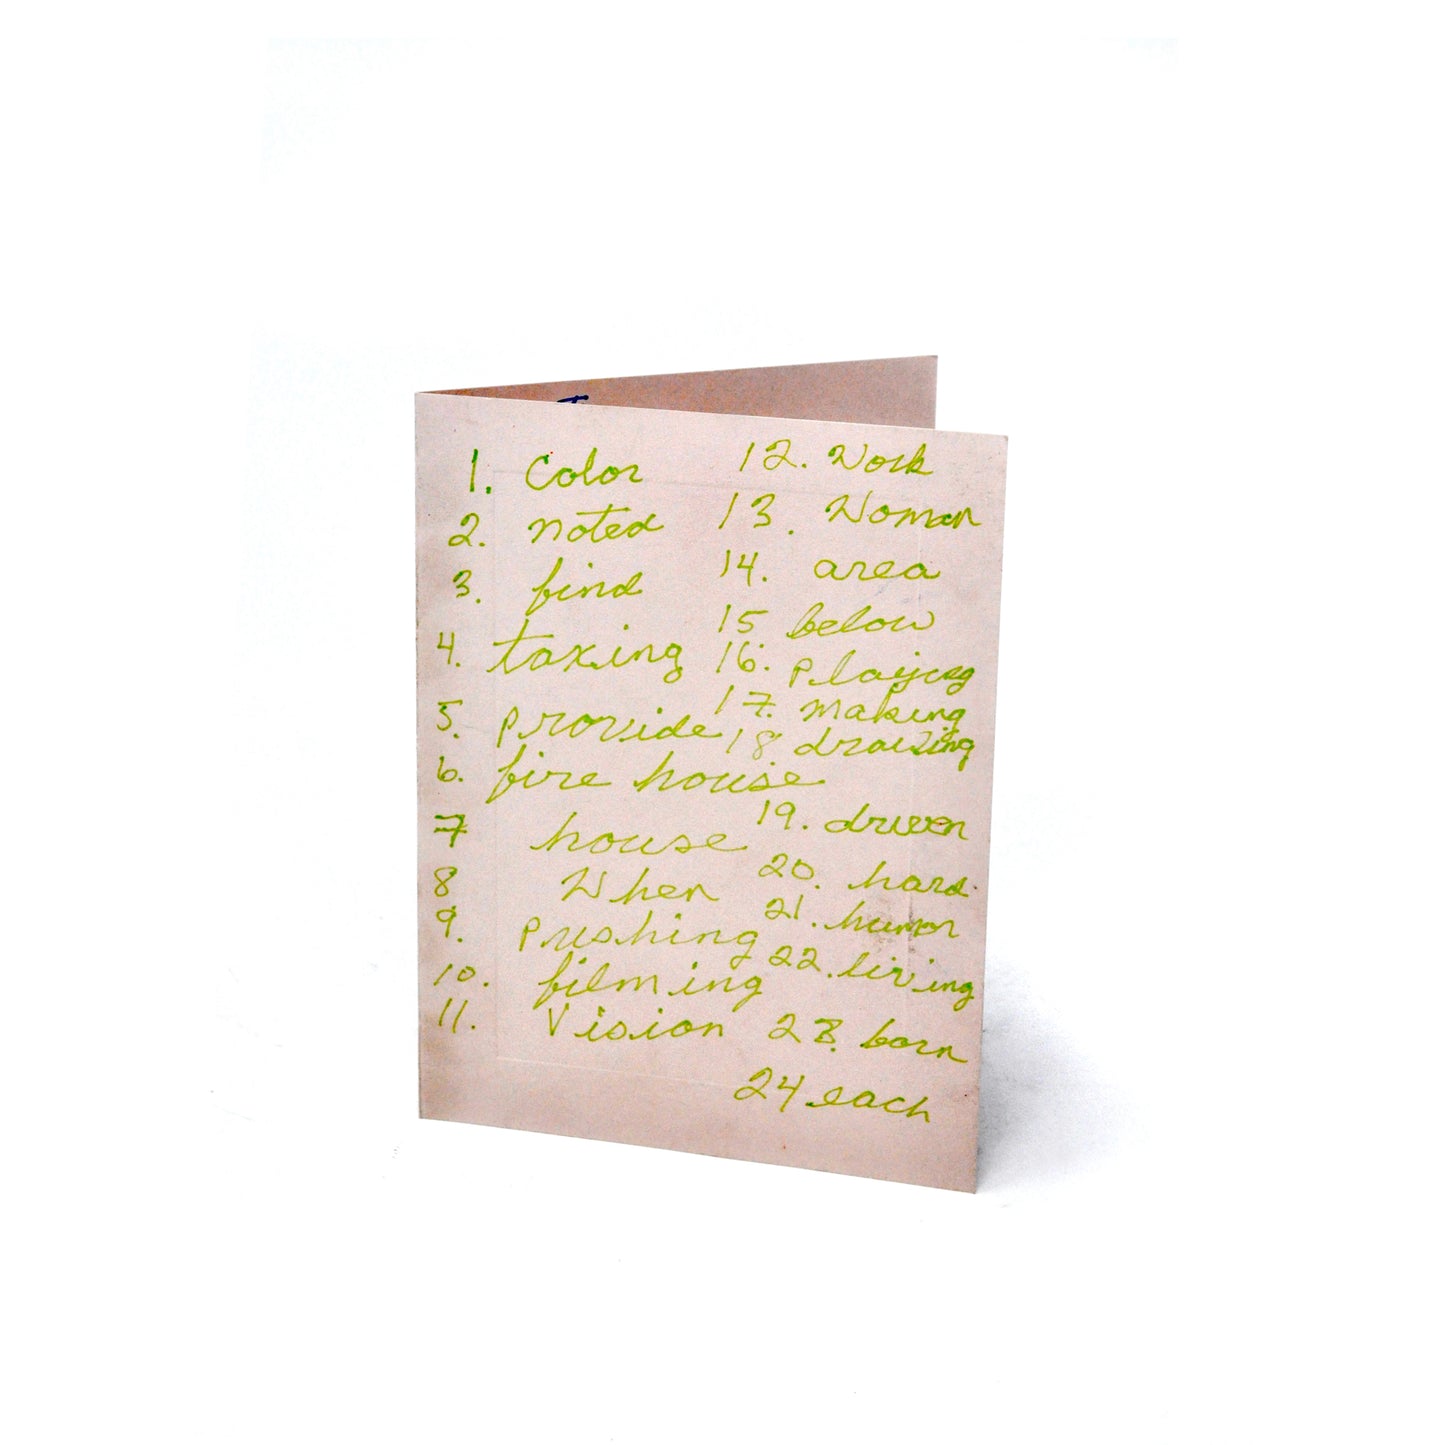 1. Color
2. noted
3. find
4. taxing
5. provide
6. fire house
7 house
8 When
9. pushing
10. filming
11. Vision
12. Work
13. Woman
14. area
15 below
16. playing
17. making
18 drawing
19. driven
20. hard
21. humor
22. living
23. born
24 each